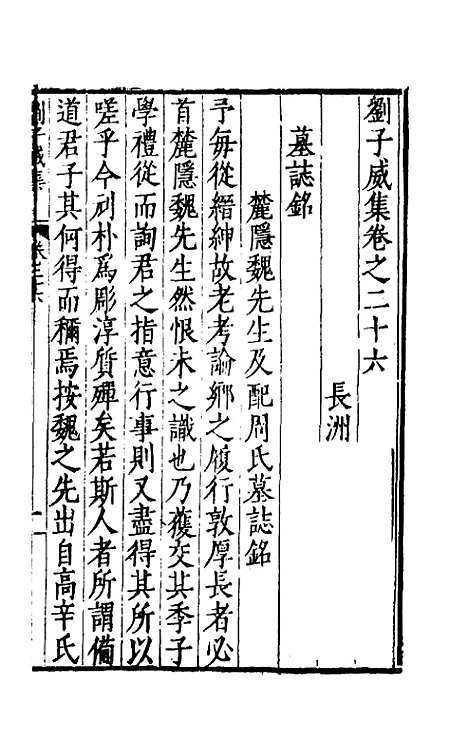 劉子威集卷之二十六
長洲
墓誌銘
麓隱魏先生及配周氏墓誌銘
予每從縉紳故老考論鄉之履行敦厚長者必
首麓隱魏先生然恨未之識也乃獲交其季子
學禮從而詢君之指意行事則又盡得其所以
嗟乎今刓朴爲彫淳質殫矣若斯人者所謂備
道君子其何得而稱焉按魏之先出自高辛氏
劉子威集 卷之二六 一